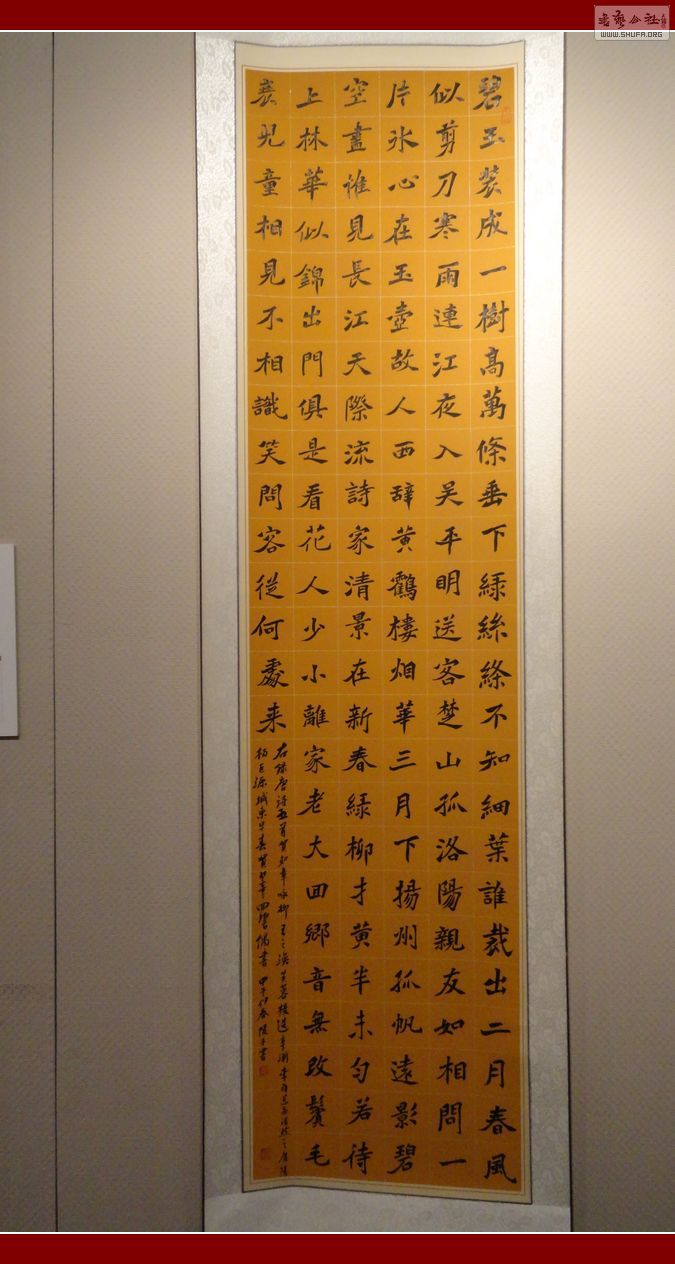 碧玉装成一樹高萬條垂下緑絲絛不知細葉誰裁出二月春風
似剪刀寒雨連江夜入吴平明送客楚山孤洛陽親友如相問一
片冰心在玉壺故人西辞黄鶴樓烟華三月下揚州孤帆遠影碧
空盡惟見長江天際流詩家清景在新春緑柳才黄半未匀若待
上林華似錦出門俱是看花人少小離家老大回鄉音無改鬢毛
衰児童相見不相識笑問客從何處来
右録唐诗五首賀知章咏柳
楊巨源城東早春賀知章回鄉偶書甲午仲春
書藝公社
WWW.SHUFA.ORG